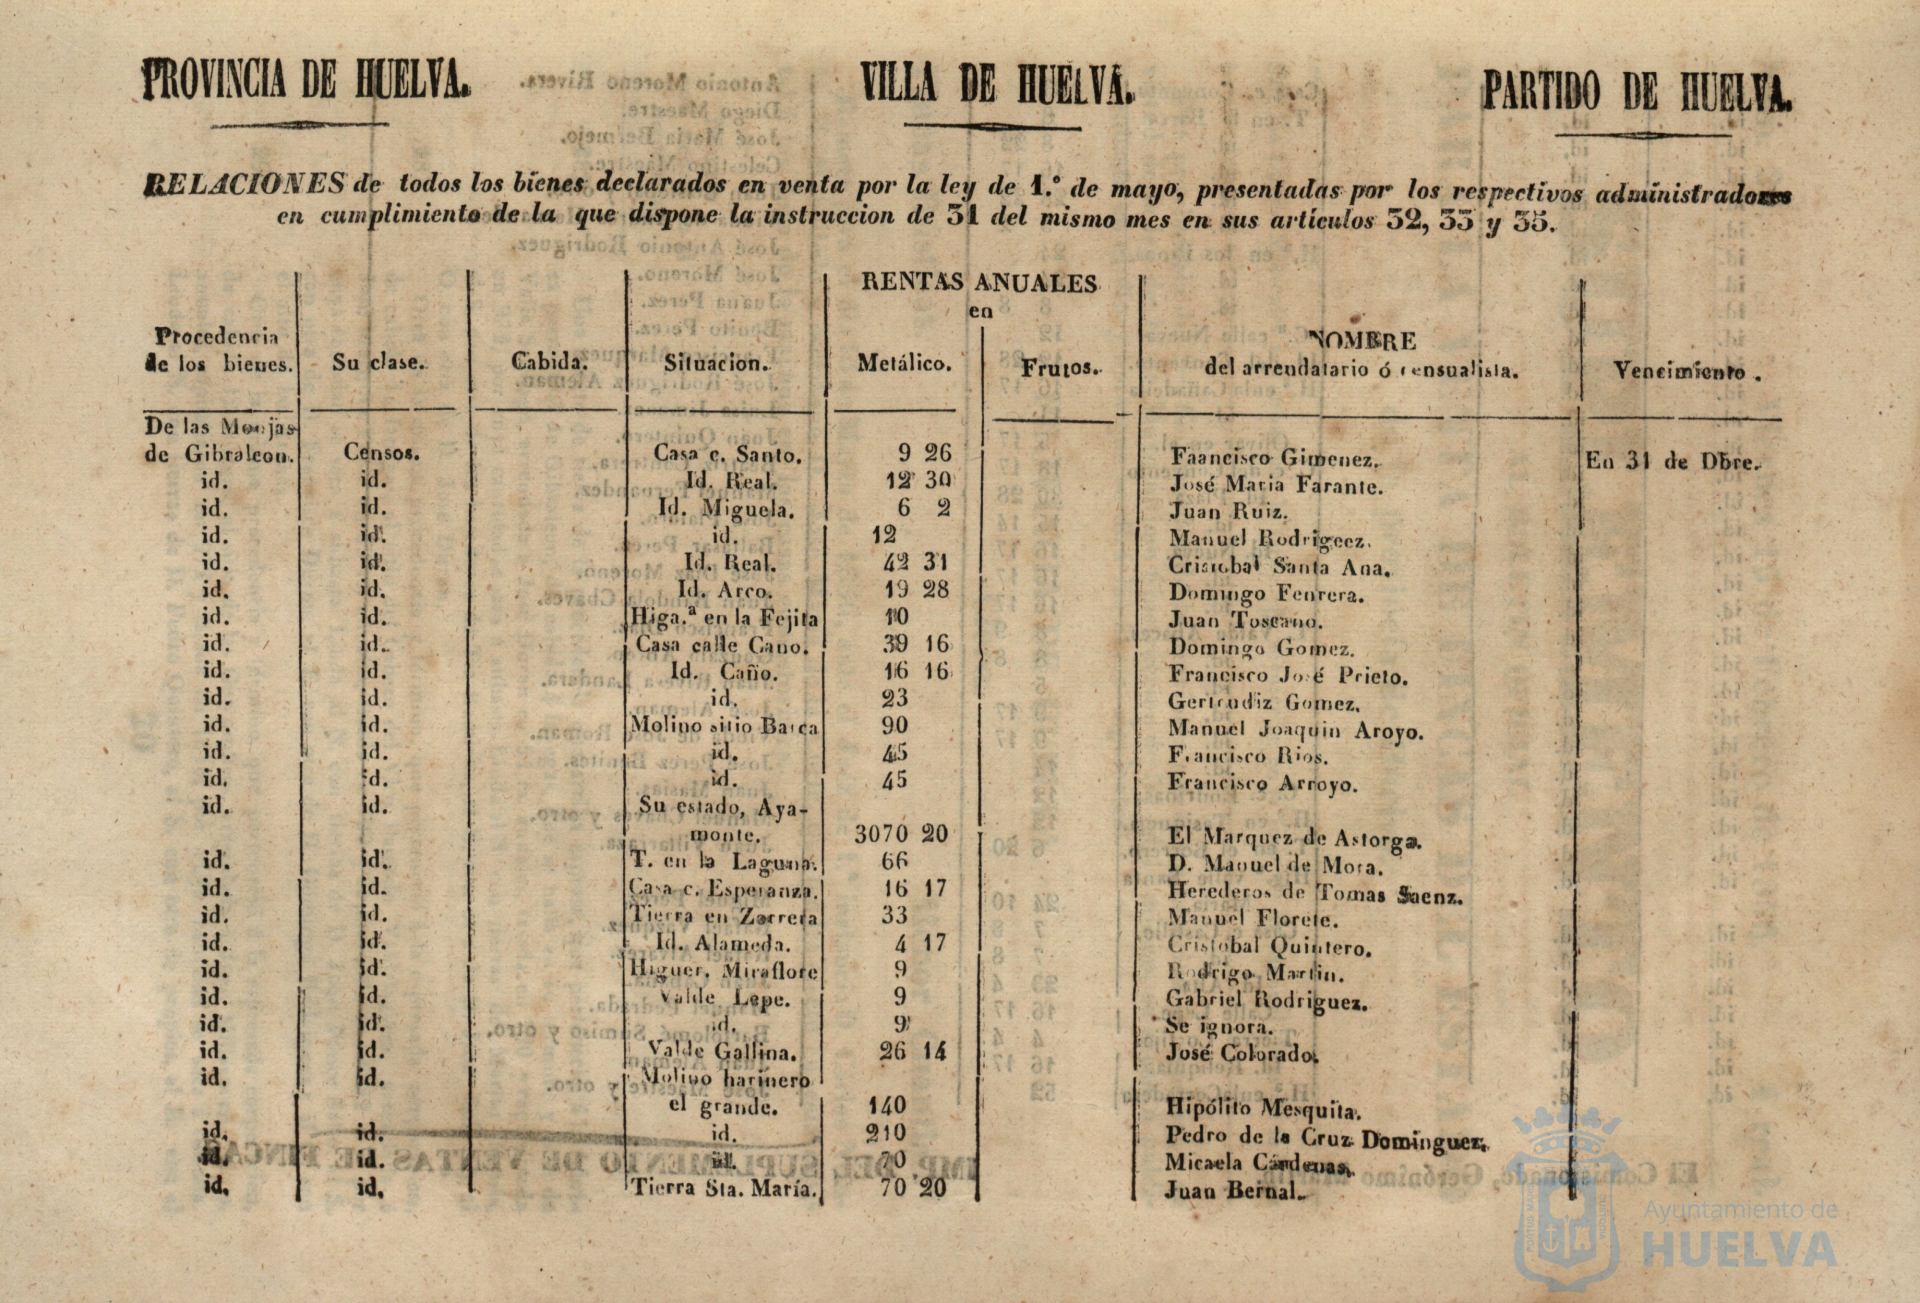 PROVINCIA DE HUELVA. VILLA DE HUELVA. PARTIDO DE HUELVA.
RELACIONES de todos los bienes declarados en venta por la ley de 1.º de mayo, presentadas por los respectivos administradores
en cumplimiento de la que dispone la instruccion de 31 del mismo mes en sus artículos 32, 33 y 35.
RENTAS ANUALES
en
Procedencia de los bienes. Su clase. Cabida. Situacion. Metálico. Frutos. NOMBRE del arrendatario ó censualista. Vencimiento.
De las Monjas
de Gibraleon. Censos. Casa c. Santo. 9 26 Faancisco Gimenez. En 31 de Dbre.
id. id. Id. Real. 12 30 José Maria Farante.
id. id. Id. Miguela. 6 2 Juan Ruiz.
id. id. id. 12 Manuel Rodrigeez.
id. id. Id. Real. 42 31 Cristobal Santa Ana.
id. id. Id. Arco. 19 28 Domingo Fenrera.
id. id. Higa.ª en la Fejita 10 Juan Toscano.
id. id. Casa calle Cano. 39 16 Domingo Gomez.
id. id. Id. Caño. 16 16 Francisco José Prieto.
id. id. id. 23 Gertrudiz Gomez.
id. id. Molino sitio Barca 90 Manuel Joaquin Aroyo.
id. id. id. 45 Francisco Rios.
id. id. id. 45 Francisco Arroyo.
id. id. Su estado, Aya-
monte. 3070 20 El Marquez de Astorga.
id. id. T. en la Laguna. 66 D. Manuel de Mora.
id. id. Casa c. Esperanza. 16 17 Herederos de Tomas Saenz.
id. id. Tierra en Zorrera 33 Manuel Florete.
id. id. Id. Alameda. 4 17 Cristobal Quintero.
id. id. Higuer. Miraflore 9 Rodrigo Martin.
id. id. Valde Lepe. 9 Gabriel Rodriguez.
id. id. id. 9 Se ignora.
id. id. Valde Gallina. 26 14 José Colorado.
id. id. Molino harinero
el grande. 140 Hipólito Mesquita.
id. id. id. 210 Pedro de la Cruz Dominguez.
id. id. id. 70 Micaela Cárdenas.
id. id. Tierra Sta. María. 70 20 Juan Bernal.
Ayuntamiento de
HUELVA